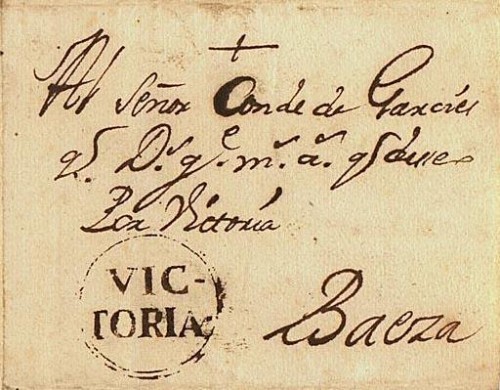 +
Al Señor Conde de Garcíes
q.^s D.^s g.^e m.^s a.^s
Por Victoria
VIC-
TORIA
Baeza